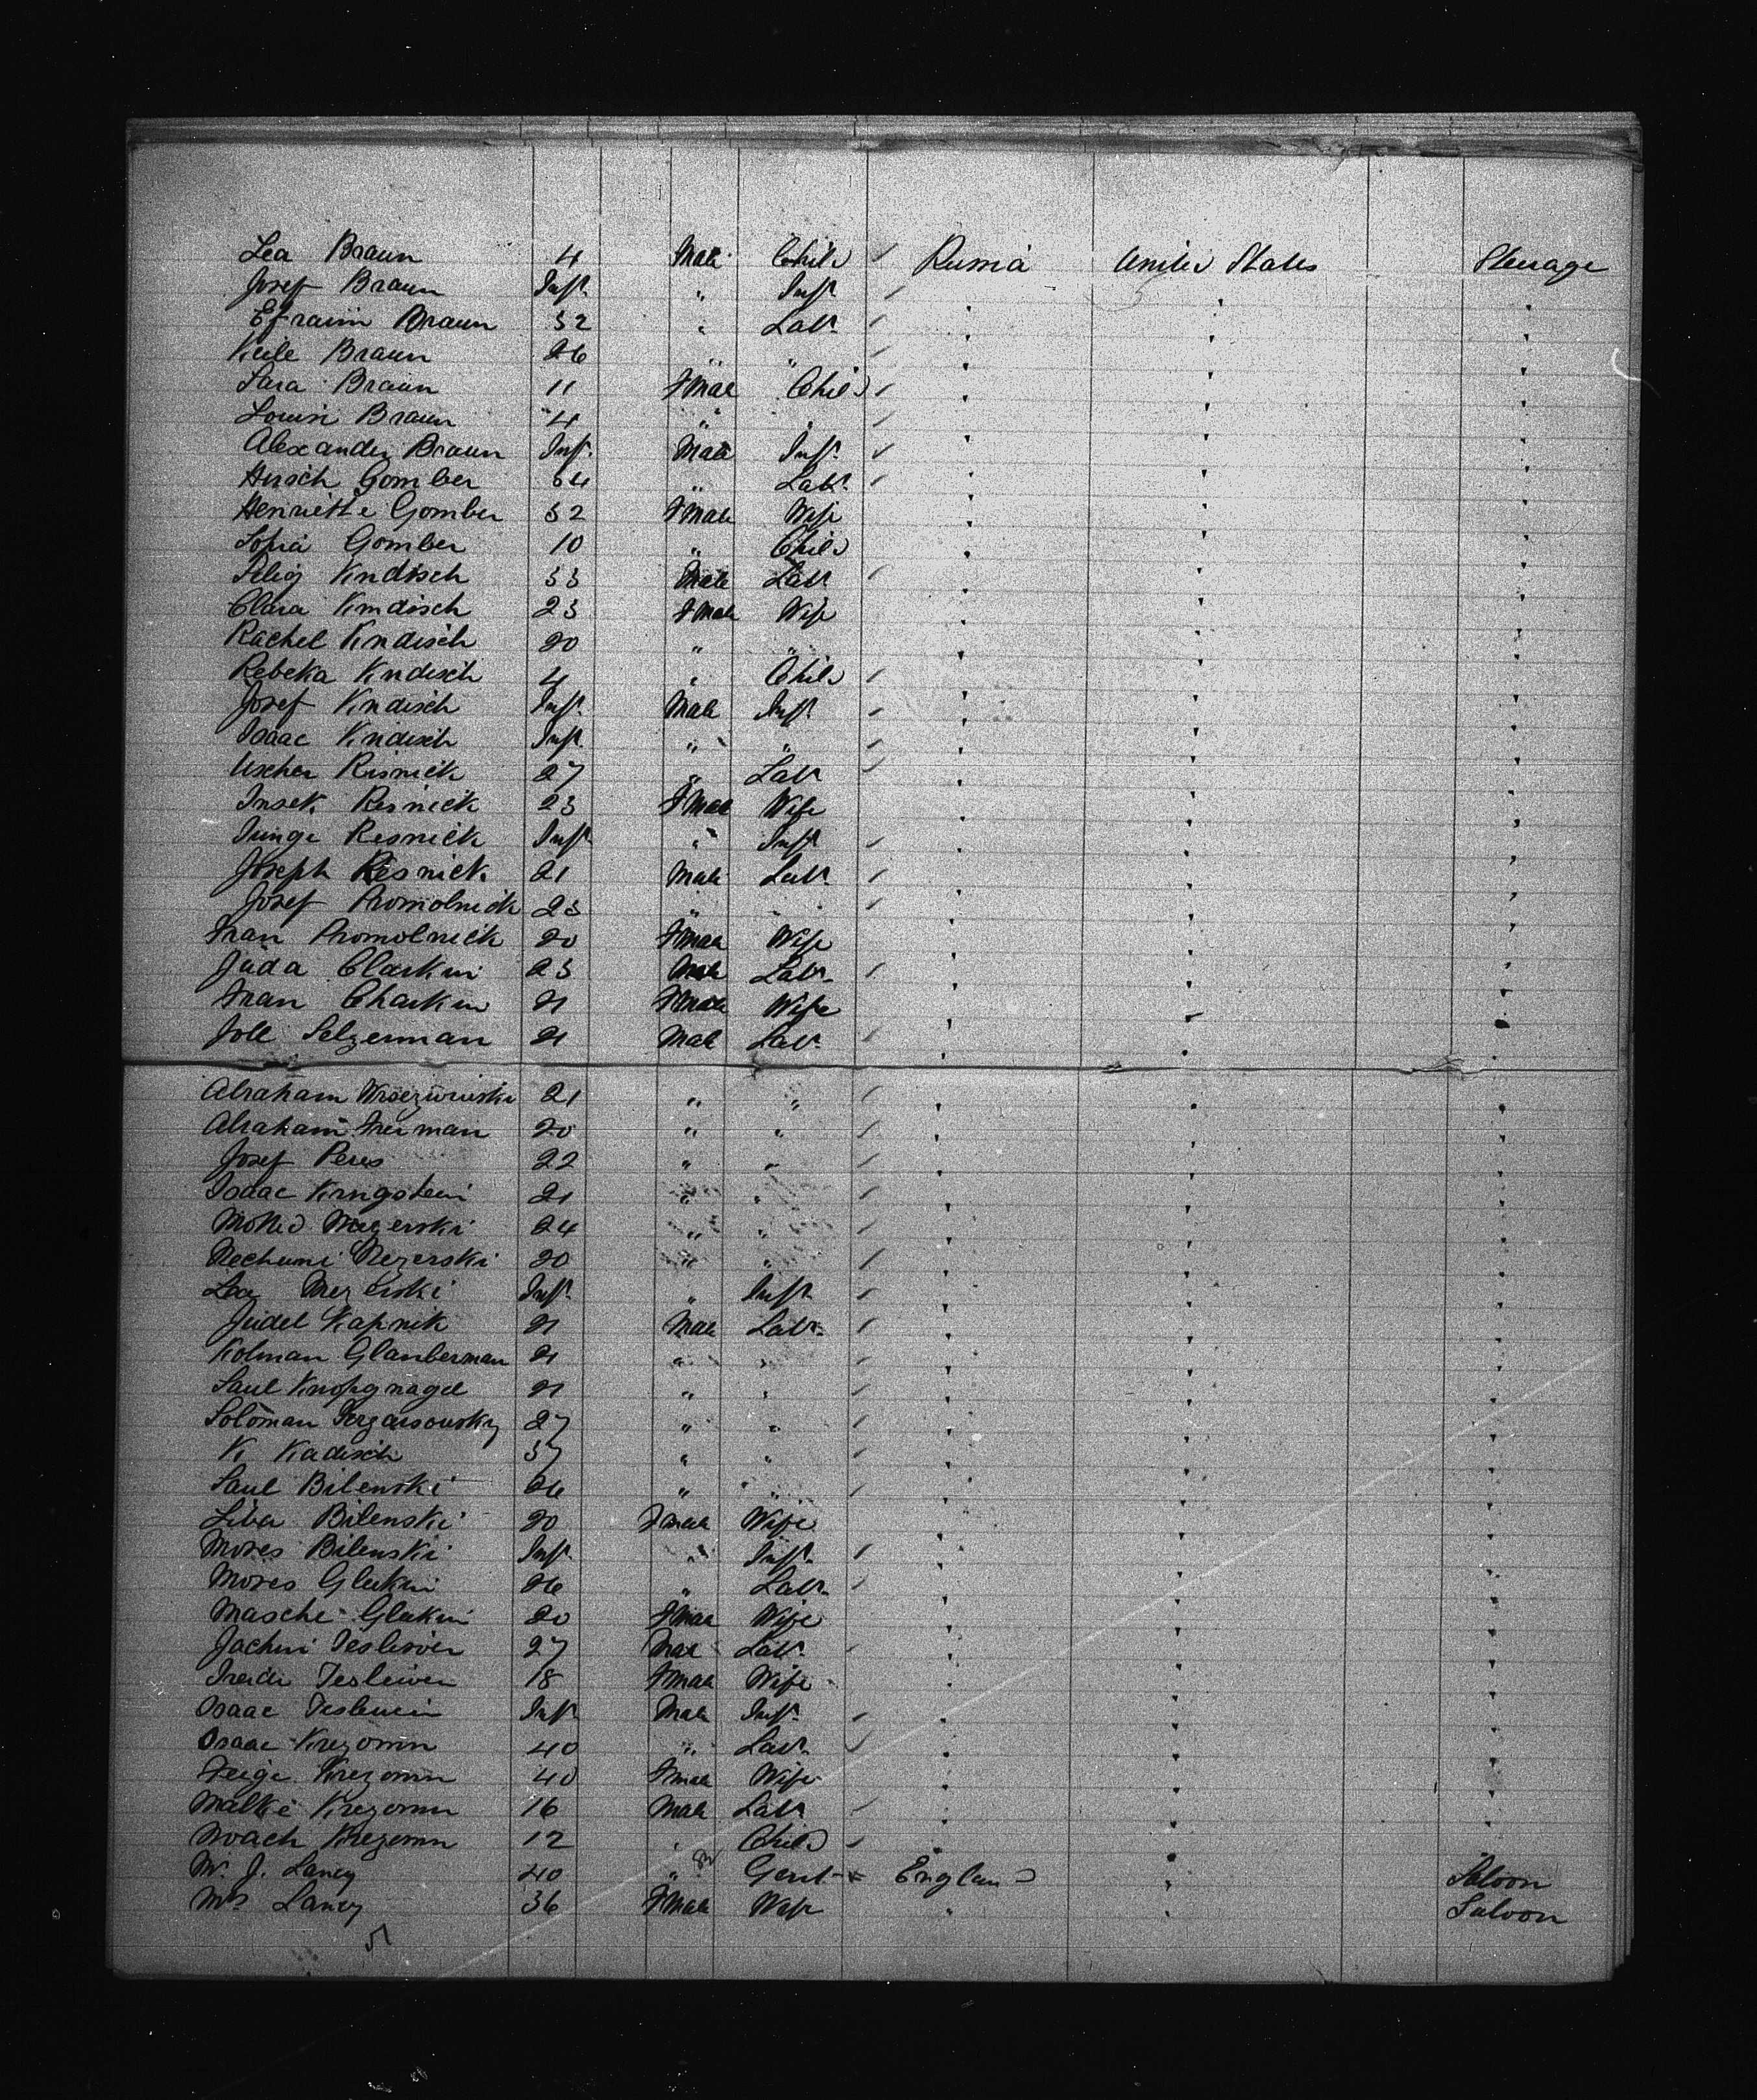 Lea Braun 4 Male Child Russia United States Steerage
Josef Braun Inft. " Inft. " " "
Efraim Braun 32 " Labr. " " "
Keile Braun 26 " " " " "
Sara Braun 11 Fmale Child " " "
Louise Braun 4 " " " " "
Alexander Braun Inft. Male Inft. " " "
Hirsch Gomber 64 " Labr. " " "
Henriette Gomber 52 Fmale Wife " " "
Sofia Gomber 10 " Child " " "
Selig Kndisch 33 Male Labr " " "
Clara Kndisch 23 Fmale Wife " " "
Rachel Kndisch 20 " " " " "
Rebeka Kndisch 4 " Child " " "
Josef Kndisch Inft. Male Inft. " " "
Isaac Kndisch Inft. " " " " "
Uscher Risnick 27 " Labr " " "
Resnick 23 Fmale Wife " " "
Junge Resnick Inft. " Inft " " "
Joseph Resnick 21 Male Labr. " " "
Josef Promolnick 23 " " " " "
Fran Promolnick 20 Fmale Wife " " "
Juda Clarkin 23 Male Labr. " " "
Fran Charkin 21 Fmale Wife " " "
Joll Selzerman 21 Male Labr. " " "
Abraham 21 " " " " "
Abraham Freiman 20 " " " " "
Josef Peres 22 " " " " "
Isaac Kringstein 21 " " " " "
Mezerski 24 " " " " "
Nechumi Mezerski 20 " " " " "
Lea Mezerski Inft. " Inft. " " "
Judel Kapnik 21 Male Labr. " " "
Kolman Glauberman 21 " " " " "
Saul Knopgnagel 21 " " " " "
Soloman 27 " " " " "
K Kadisch 37 " " " " "
Saul Bilenski 26 " " " " "
Liba Bilenski 20 Fmale Wife " " "
Moses Bilenski Inft. " Inft. " " "
Moses Glukin 26 " Labr. " " "
Masche Glukin 20 Fmale Wife " " "
Jachni Teslewen 27 Male Labr. " " "
Teslewen 18 Fmale Wife " " "
Isaac Teslewen Inft Male Inft. " " "
Isaac Krezomn 40 " Labr. " " "
Feige Krezomn 40 Fmale Wife " " "
Malke Krezomn 16 Male Labr " " "
Noach Krezomn 12 " Child " " "
Mr. J. Lancy 40 " Gent England " Saloon
Mrs Lancy 36 Fmale Wife " " Saloon
51